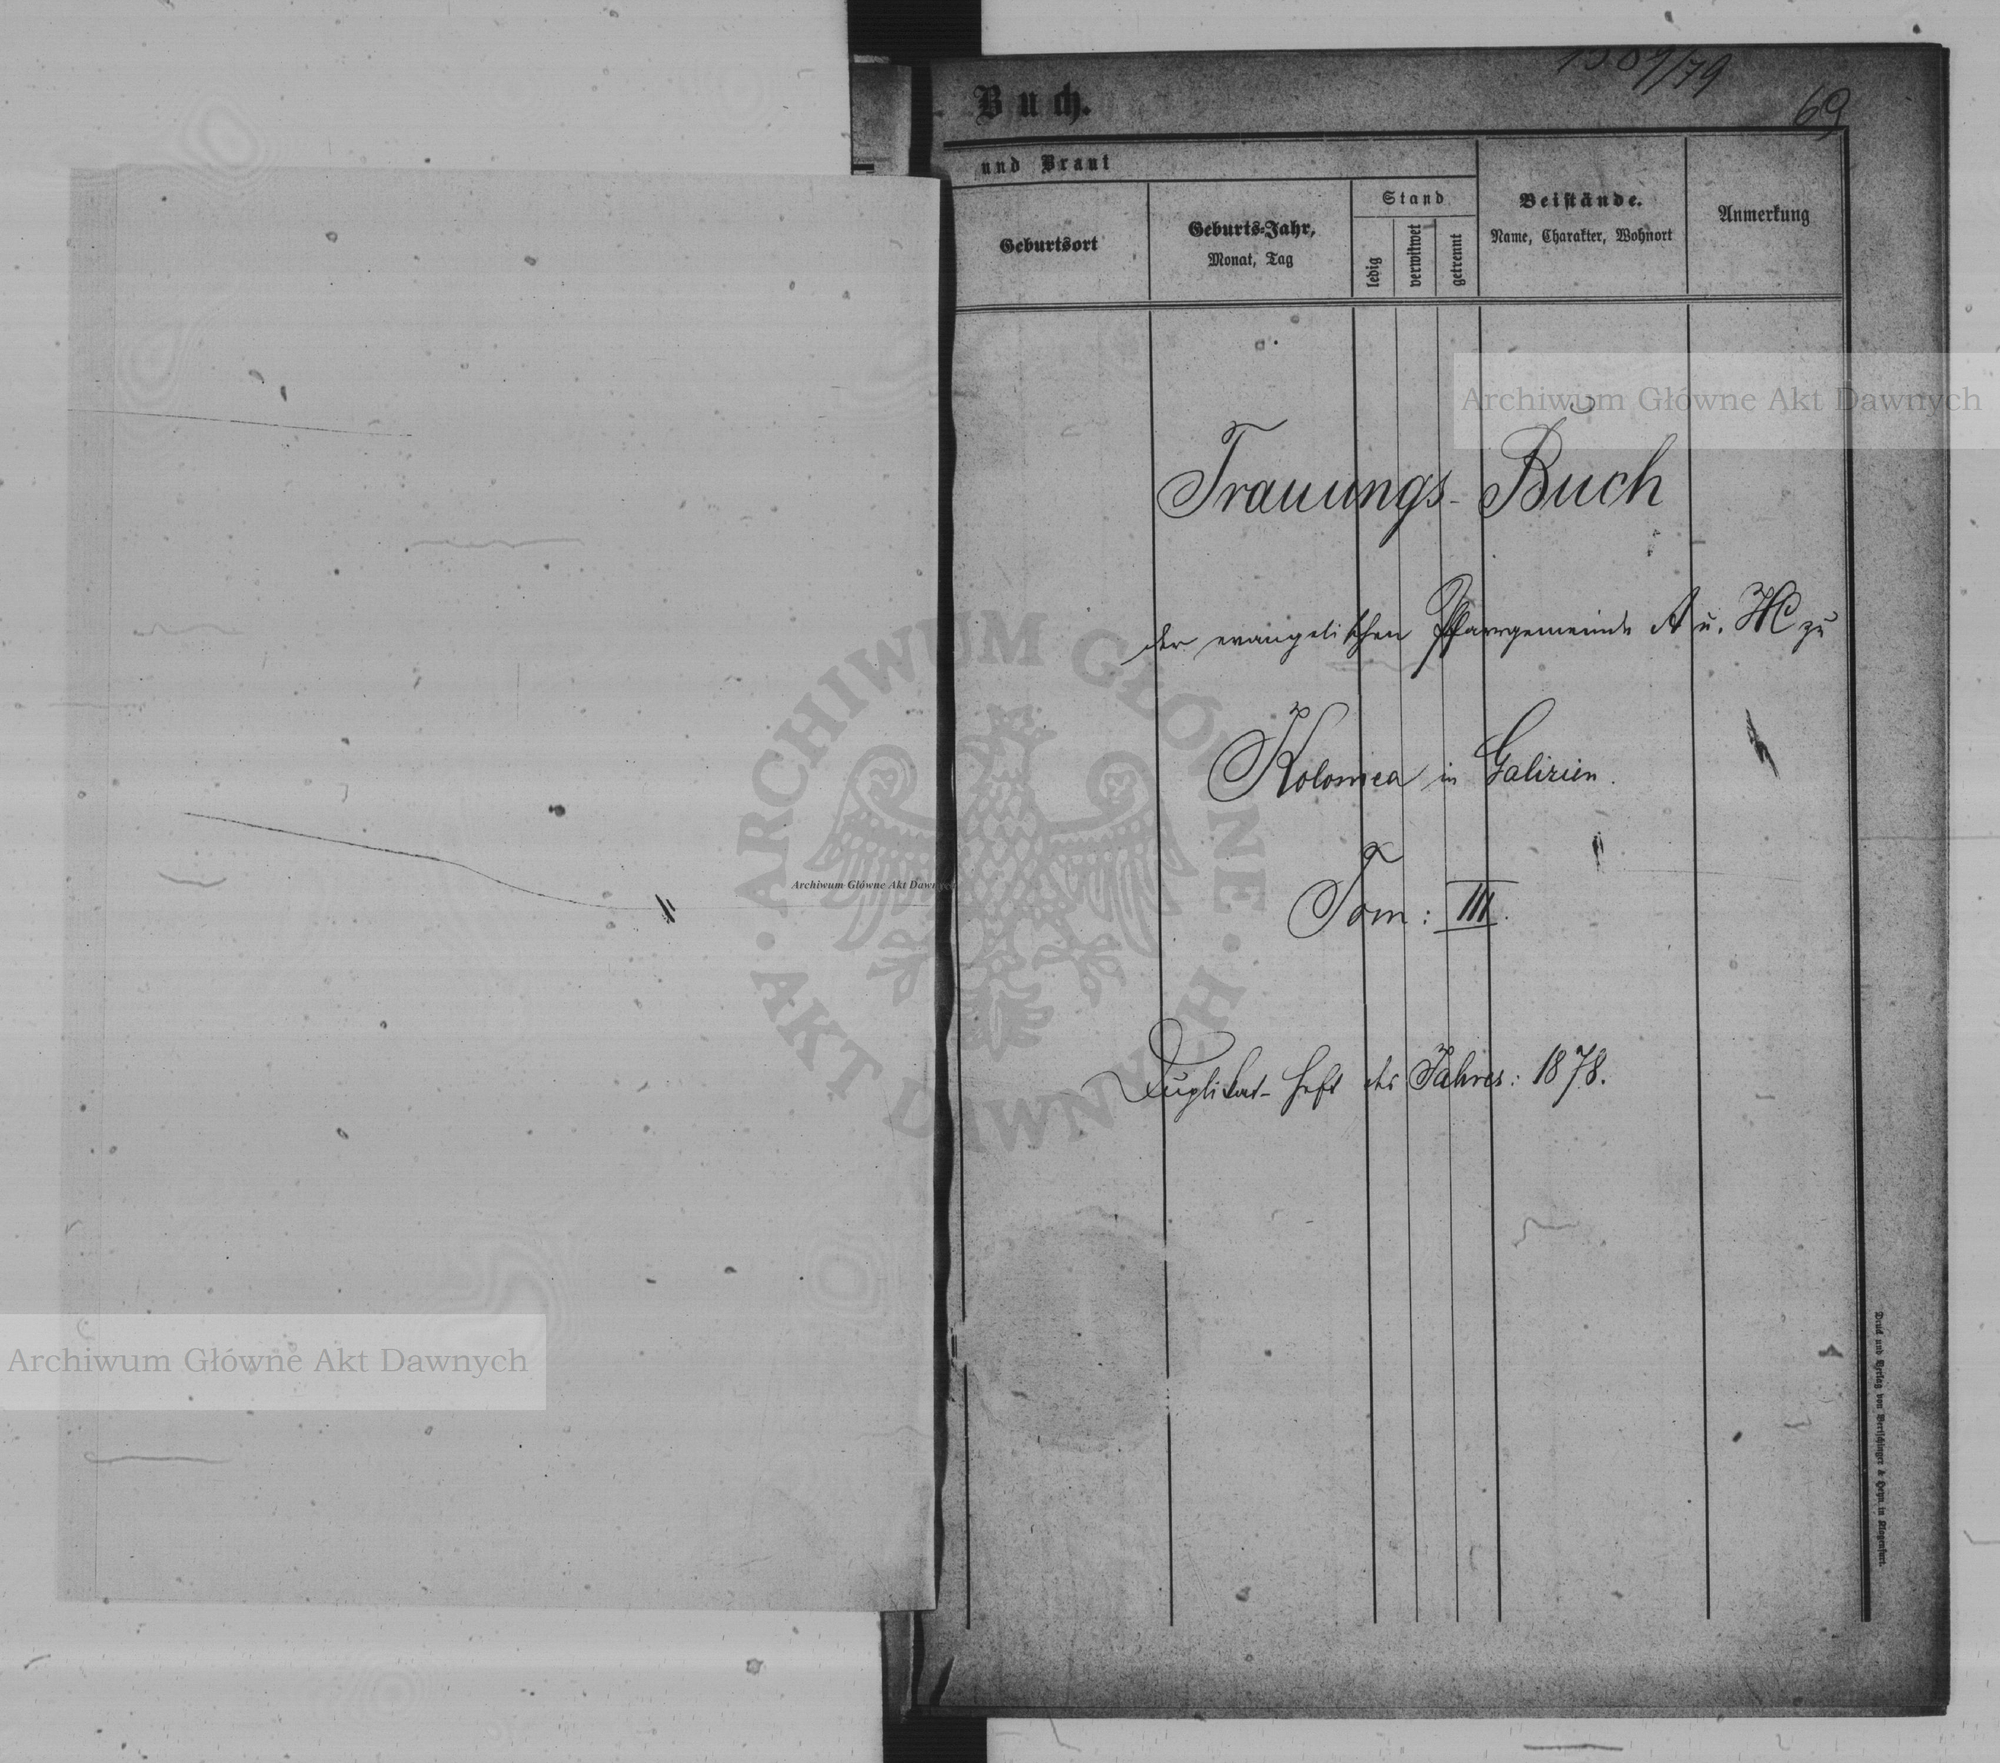 69
Buch.
und Braut
Geburtsort
Geburts-Jahr,
Monat, Tag
Stand
ledig
verwitwet
getrennt
Beistände.
Name, Charakter, Wohnort
Anmerkung
Archiwum Główne Akt Dawnych
Trauungs-Buch
der evangelischen Pfarrgemeinde A u. HC zu
Kolomea in Galizien.
Tom: III.
Duplikat-Heft des Jahres: 1878.
ARCHIWUM GŁÓWNE
AKT DAWNYCH
Archiwum Główne Akt Dawnych
Archiwum Główne Akt Dawnych
Druck und Verlag von Bertschinger & Heyn in Klagenfurt.